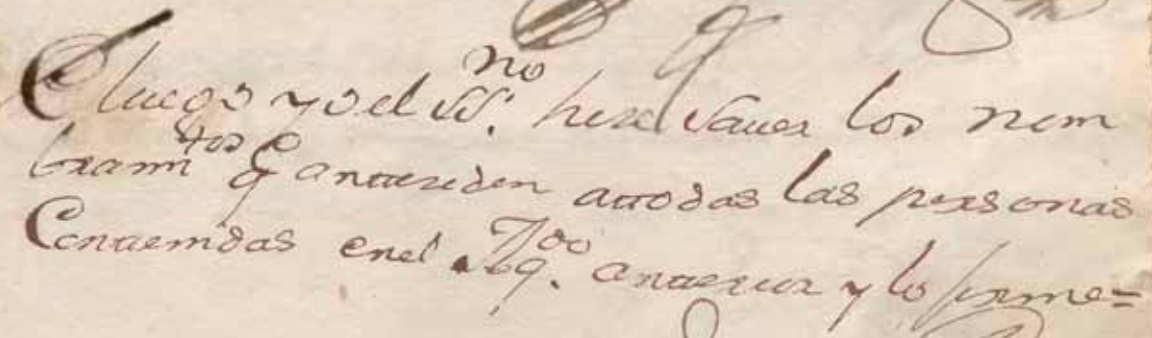 E luego yo el SS.no hize Saver los nom
bramtos q antezeden attodas las personas
Contenidas en el antterior y lo firme=